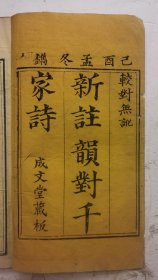 己酉孟冬鐫
較對無訛
新註韻對千
家詩
成文堂藏板